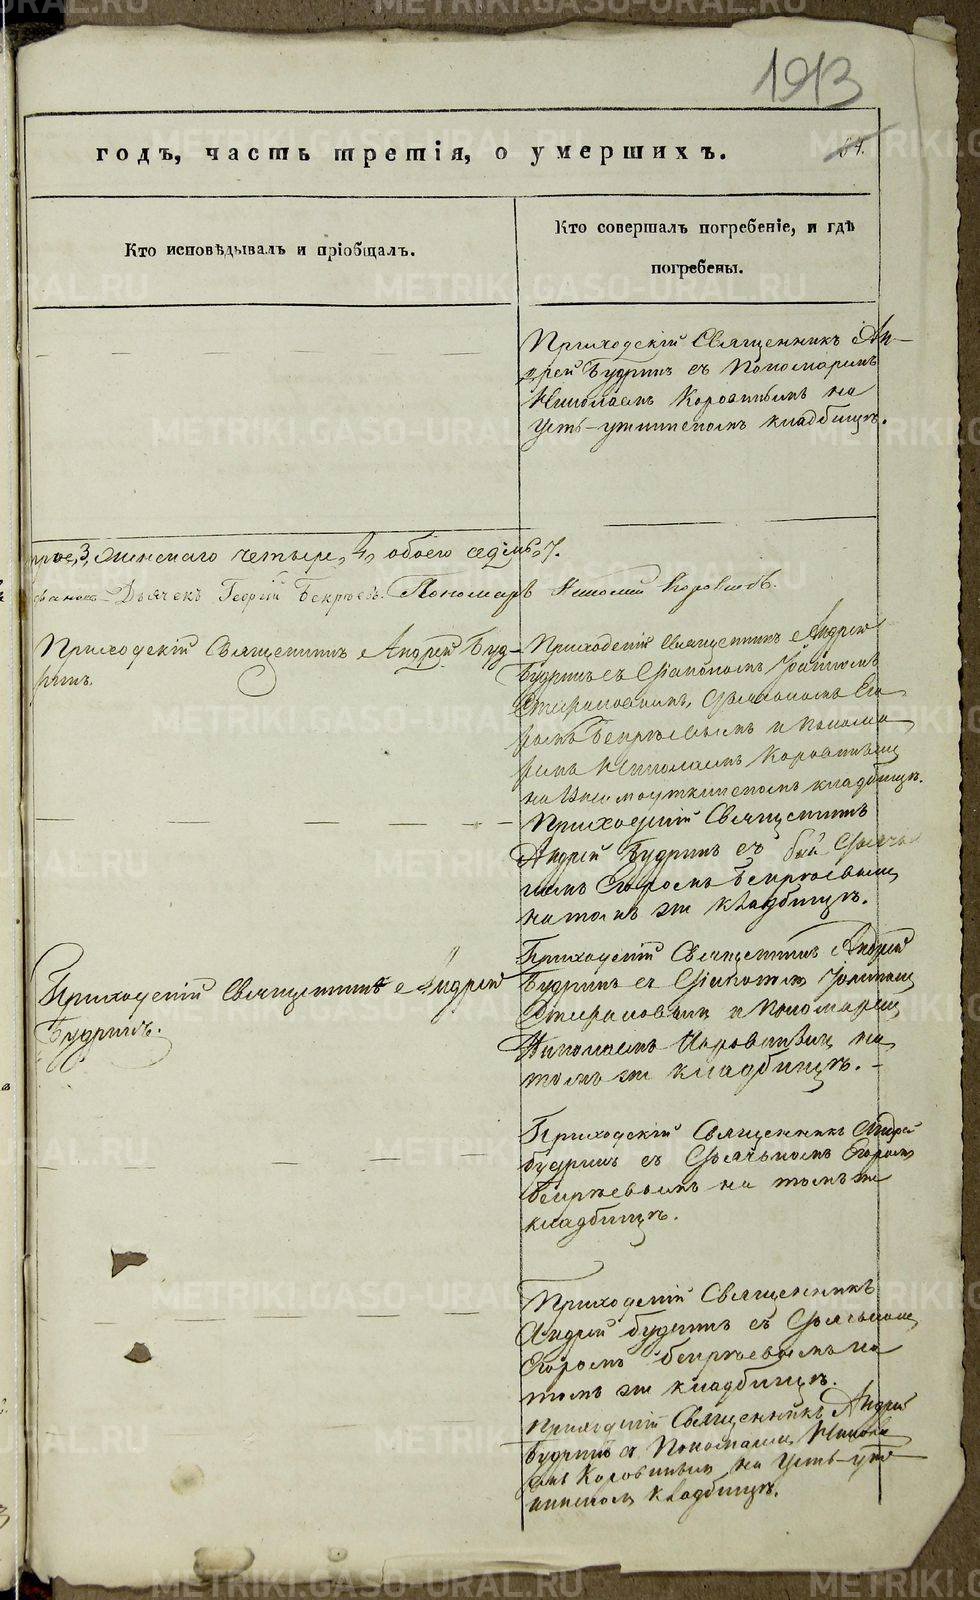 1913
годъ, часть третія, о умершихъ.
64.
Кто исповѣдывалъ и пріобщалъ.
Кто совершалъ погребеніе, и гдѣ
погребены.
Приходскій Священникъ Ан-
дрей Будринъ съ Пономаремъ
Николаемъ Коровинымъ на
Усть-утинскомъ кладбищѣ.
трое, 3, женскаго четыре, 4, обоего седмь, 7.
Дьячекъ Георгій Бекрѣевъ. Пономарь Николай Коровинъ.
Приходскій Священникъ Андрей Буд-
ринъ.
Приходскій Священникъ Андрей
Будринъ съ Діакономъ Іоанномъ
Стефановымъ, Дьячкомъ Его
ромъ Бекрѣевымъ и Понома
ремъ Николаемъ Коровинымъ
на кладбищѣ.
Приходскій Священникъ
Андрей Будринъ съ Дьяч
комъ Егоромъ Бекрѣевымъ
на томъ же кладбищѣ.
Приходскій Священникъ Андрей
Будринъ.
Приходскій Священникъ Андрей
Будринъ съ Діакономъ Іоанномъ
Стефановымъ и Пономаремъ
Николаемъ Коровинымъ на
томъ же кладбищѣ.
Приходскій Священникъ Андрей
Будринъ съ Дьячкомъ Егоромъ
Бекрѣевымъ на томъ же
кладбищѣ.
Приходскій Священникъ
Андрей Будринъ съ Дьячкомъ
Егоромъ Бекрѣевымъ на
томъ же кладбищѣ.
Приходскій Священникъ Андрей
Будринъ съ Пономаремъ Никола
емъ Коровинымъ на Усть-ути
нскомъ кладбищѣ.
METRIKI.GASO-URAL.RU